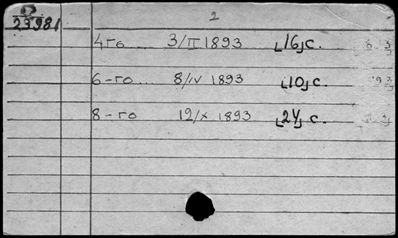 2
23981
4 го 3/II 1893 [16] с.
6-го 8/IV 1893 [10] с.
8-го 12/X 1893 [24] с.